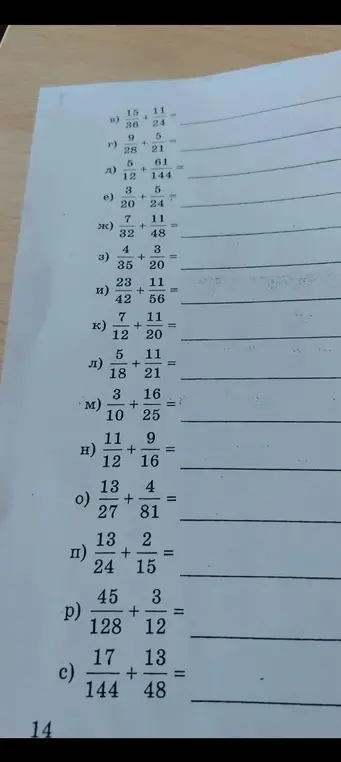 в) 15/36 + 11/24 =
г) 9/28 + 5/21 =
д) 5/12 + 61/144 =
е) 3/20 + 5/24 =
ж) 7/32 + 11/48 =
з) 4/35 + 3/20 =
и) 23/42 + 11/56 =
к) 7/12 + 11/20 =
л) 5/18 + 11/21 =
м) 3/10 + 16/25 =
н) 11/12 + 9/16 =
о) 13/27 + 4/81 =
п) 13/24 + 2/15 =
р) 45/128 + 3/12 =
с) 17/144 + 13/48 =
14